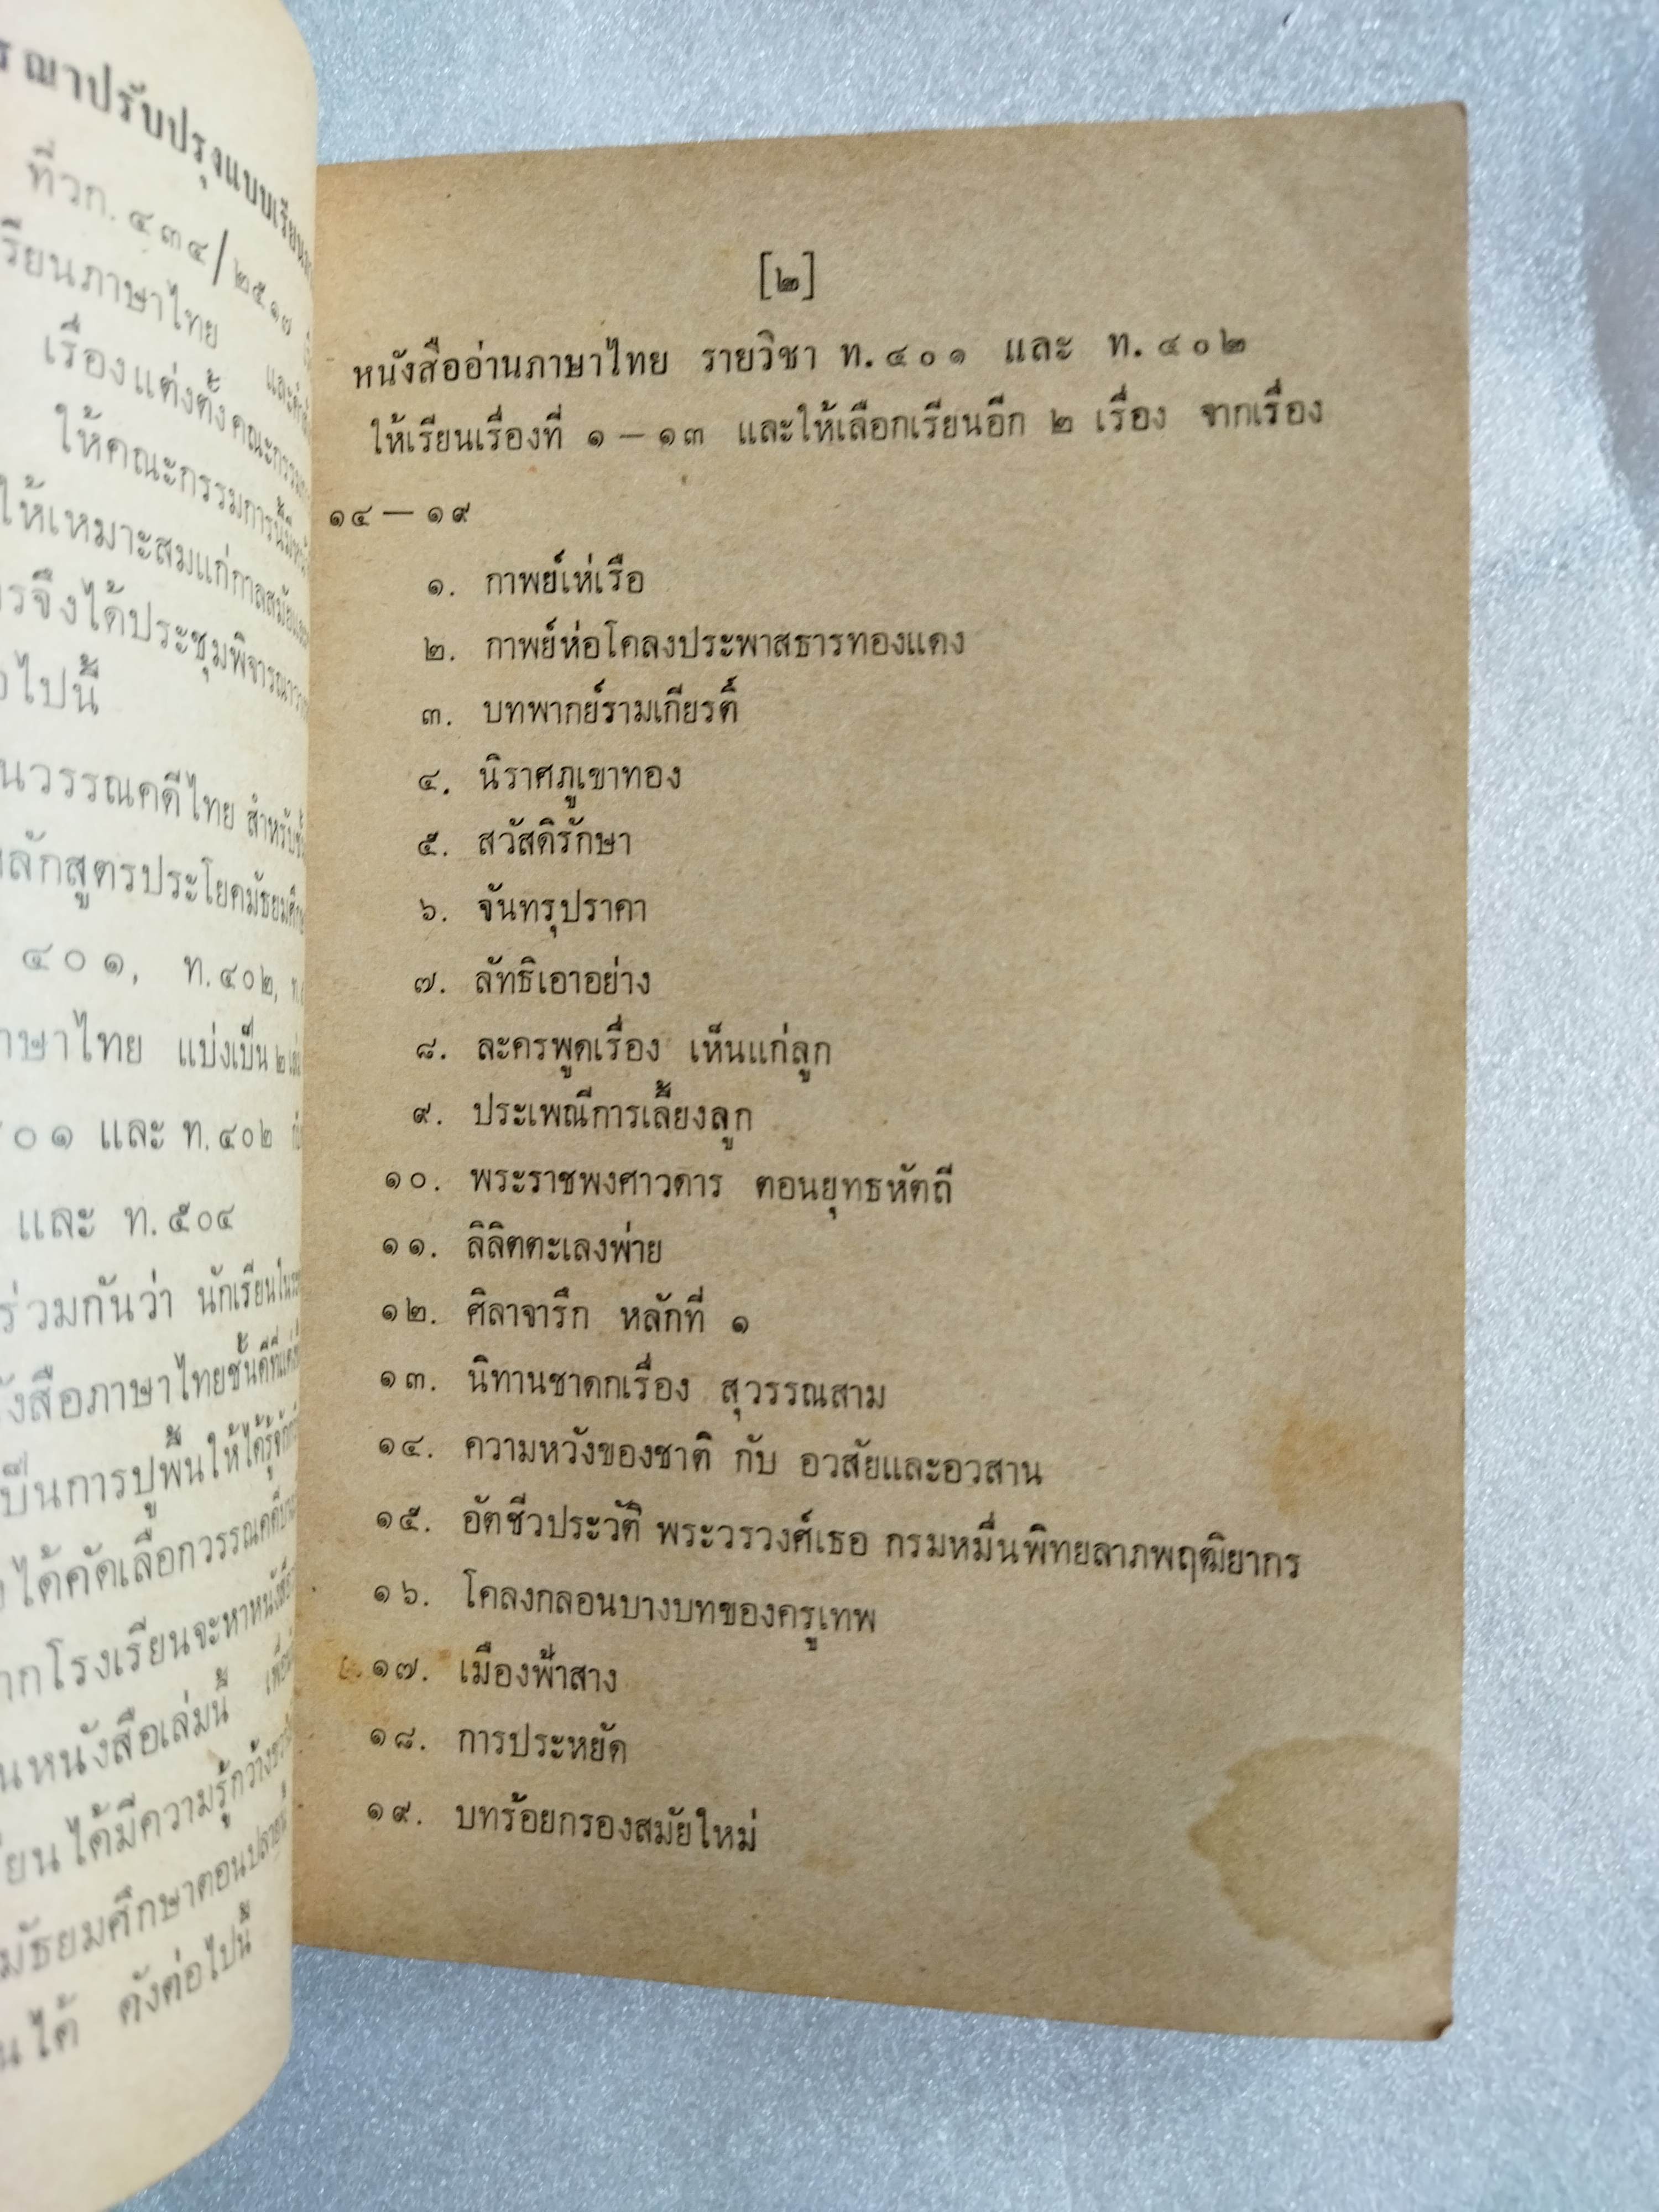 ณาปรับปรุงแบบเรียน
ที่วก. ๔๓๔/๒๕๑๗
เรียนภาษาไทย
เรื่องแต่งตั้งคณะกรรม
ให้คณะกรรมการนี้
ให้เหมาะสมแก่กาลสมัย
จึงได้ประชุมพิจารณา
ไปนี้
วรรณคดีไทย สำหรับ
หลักสูตรประโยคมัธยมศึก
๔๐๑, ท.๔๐๒,
ภาษาไทย แบ่งเป็น ๒
๔๐๑ และ ท.๔๐๒
และ ท.๕๐๔
ร่วมกันว่า นักเรียนใน
หนังสือภาษาไทยชั้นดีที่แต่ง
เป็นการปูพื้นให้ได้รู้จัก
ได้คัดเลือกวรรณคดี
จากโรงเรียนจะหาหนังสือ
ในหนังสือเล่มนี้ เพื่อ
เรียนได้มีความรู้กว้างขวาง
มัธยมศึกษาตอนปลาย
ได้ ดังต่อไปนี้
[๒]
หนังสืออ่านภาษาไทย รายวิชา ท.๔๐๑ และ ท.๔๐๒
ให้เรียนเรื่องที่ ๑ – ๑๓ และให้เลือกเรียนอีก ๒ เรื่อง จากเรื่อง
๑๔ – ๑๙
๑. กาพย์เห่เรือ
๒. กาพย์ห่อโคลงประพาสธารทองแดง
๓. บทพากย์รามเกียรติ์
๔. นิราศภูเขาทอง
๕. สวัสดิรักษา
๖. จันทรุปราคา
๗. ลัทธิเอาอย่าง
๘. ละครพูดเรื่อง เห็นแก่ลูก
๙. ประเพณีการเลี้ยงลูก
๑๐. พระราชพงศาวดาร ตอนยุทธหัตถี
๑๑. ลิลิตตะเลงพ่าย
๑๒. ศิลาจารึก หลักที่ ๑
๑๓. นิทานชาดกเรื่อง สุวรรณสาม
๑๔. ความหวังของชาติ กับ อวสัยและอวสาน
๑๕. อัตชีวประวัติ พระวรวงศ์เธอ กรมหมื่นพิทยลาภพฤฒิยากร
๑๖. โคลงกลอนบางบทของครูเทพ
๑๗. เมืองฟ้าสาง
๑๘. การประหยัด
๑๙. บทร้อยกรองสมัยใหม่